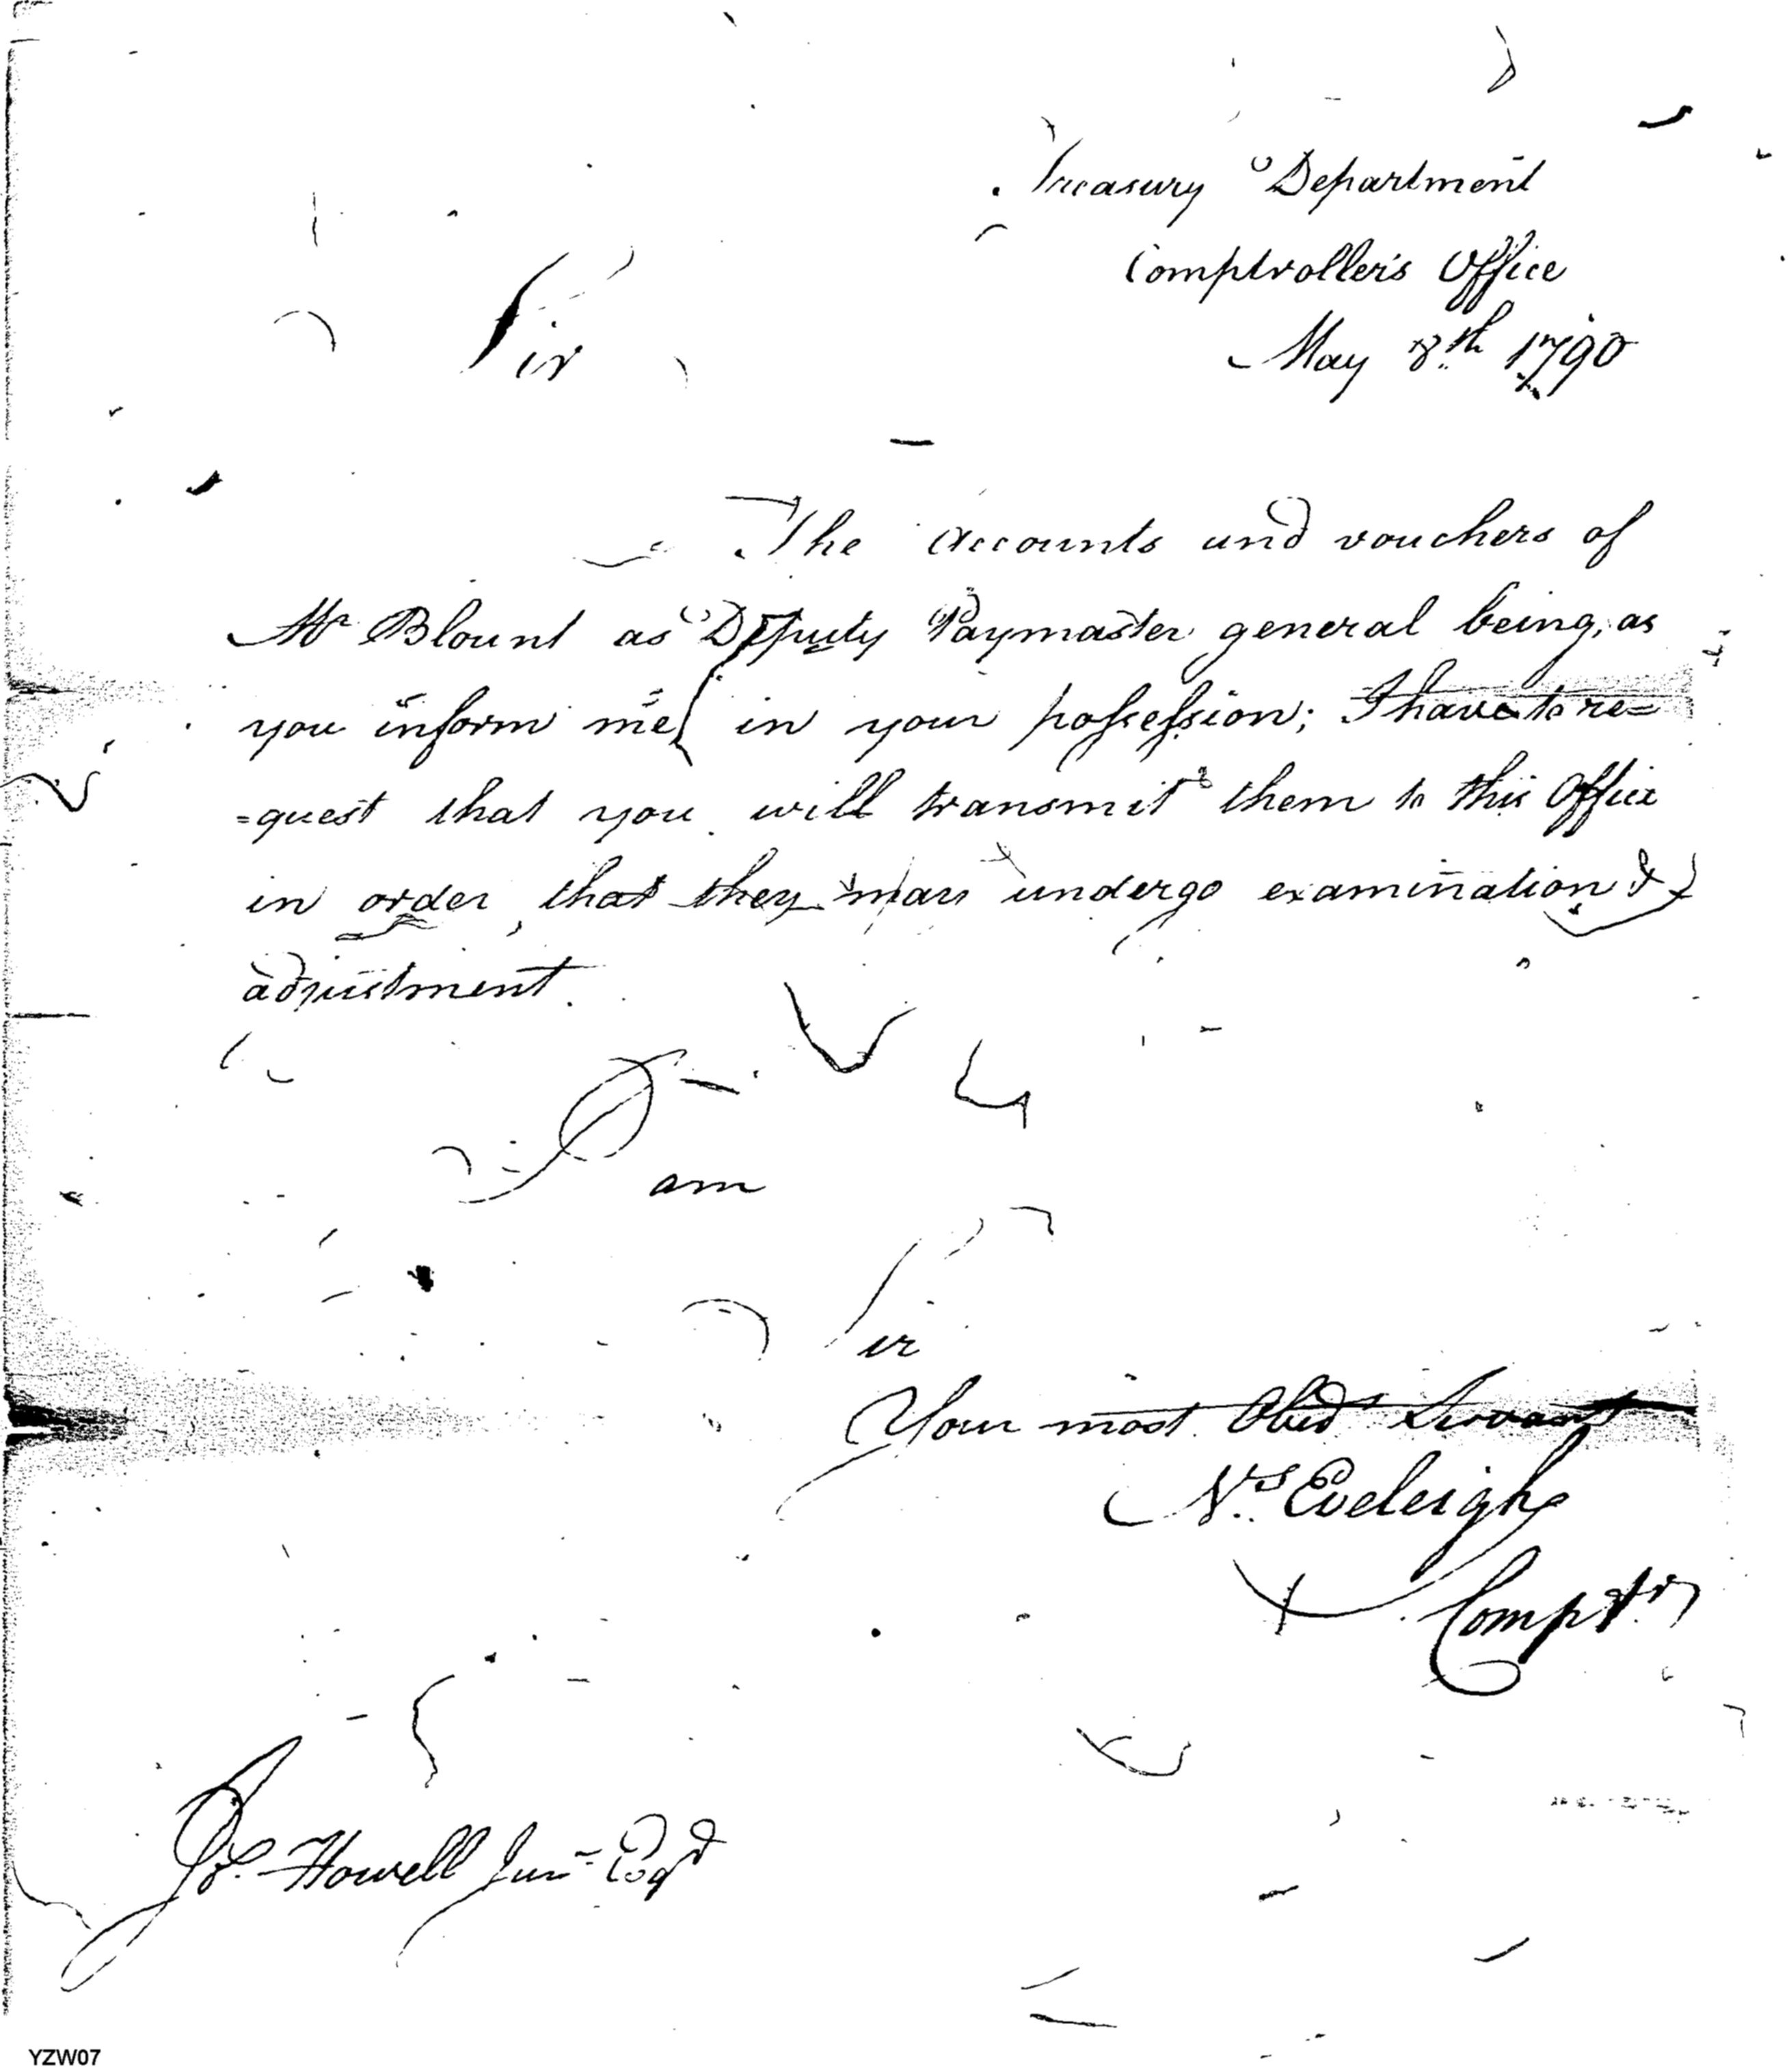 Treasury Department
Comptroller's Office
May 8th 1790
Sir
The Accounts and vouchers of
Mr Blount as Deputy Paymaster general being, as
you inform me in your possession; I have to re=
=quest that you will transmit them to this Office
in order that they may undergo examination &
adjustment.
I am
Sir
Your most Obedt Servant
Ns. Eveleigh
Comptr
Jos. Howell Junr Esqr
YZW07